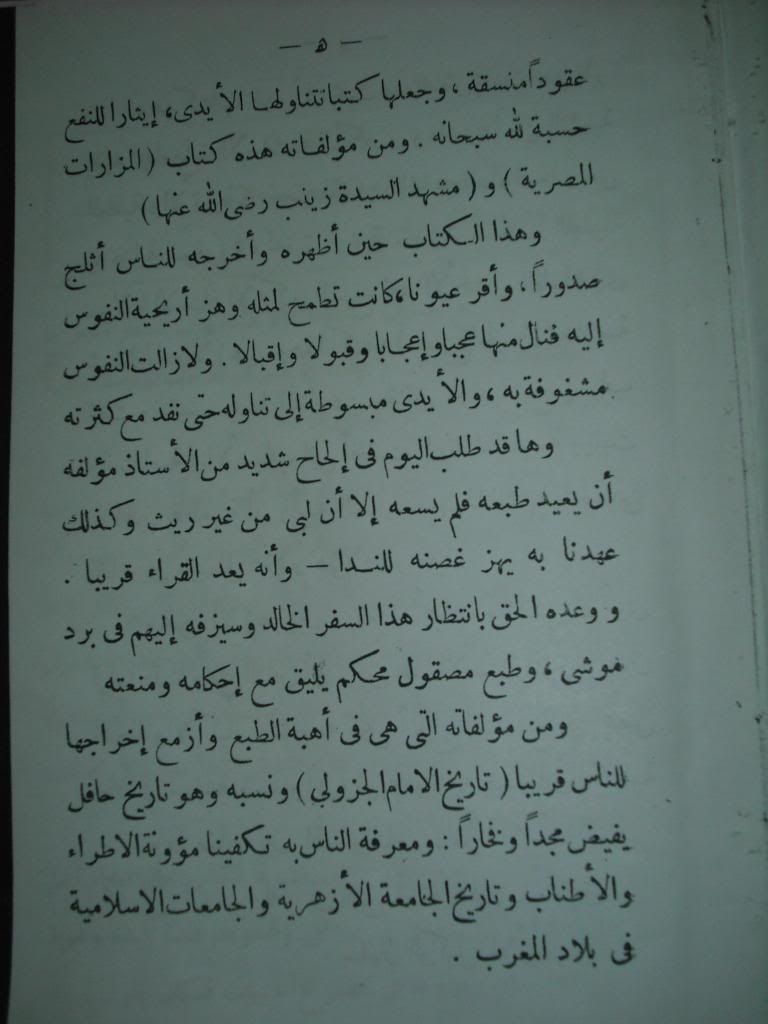 — ه —
عقوداً منسقة ، وجعلها كتبا تتناولها الأيدى، إيثارا للنفع
حسبة لله سبحانه . ومن مؤلفاته هذه كتاب ( المزارات
المصرية ) و ( مشهد السيدة زينب رضى الله عنها )
وهذا الكتاب حين أظهره وأخرجه للناس أثلج
صدوراً ، وأقر عيونا، كانت تطمح لمثله وهز أريحية النفوس
إليه فنال منها عجبا وإعجابا وقبولا وإقبالا . ولازالت النفوس
مشغوفة به ، والأيدى مبسوطة إلى تناوله حتى نفد مع كثرته
وها قد طلب اليوم فى إلحاح شديد من الأستاذ مؤلفه
أن يعيد طبعه فلم يسعه إلا أن لبى من غير ريث وكذلك
عهدنا به يهز غصنه للندا — وأنه يعد القراء قريبا .
ووعده الحق بانتظار هذا السفر الخالد وسيزفه إليهم فى برد
موشى ، وطبع مصقول محكم يليق مع إحكامه ومنعته
ومن مؤلفاته التى هى فى أهبة الطبع وأزمع إخراجها
للناس قريبا ( تاريخ الامام الجزولي ) ونسبه وهو تاريخ حافل
يفيض مجداً وفخاراً : ومعرفة الناس به تكفينا مؤونة الاطراء
والأطناب وتاريخ الجامعة الأزهرية والجامعات الاسلامية
فى بلاد المغرب .